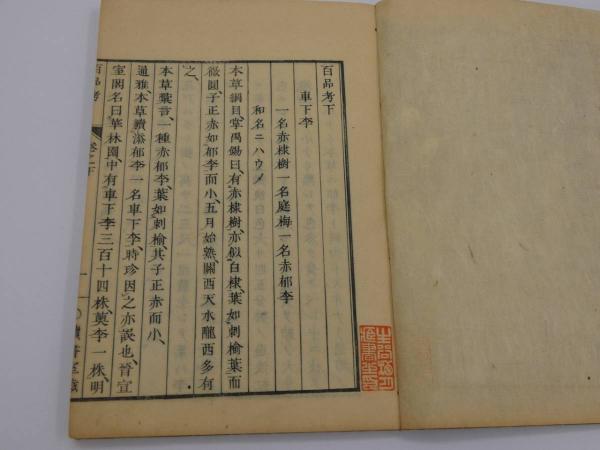 百品考下
車下李
一名赤棣樹一名庭梅一名赤郁李
和名ニハウメ
本草綱目、掌禹錫曰、有赤棣樹、亦似白棣、葉如刺榆葉而
微圓、子正赤、如郁李而小、五月始熟、關西天水隴西多有
之、
本草彙言、一種赤郁李、葉如刺榆、其子正赤而小、
通雅本草續溢郁李一名車下李、時珍因之亦誤也、晉宣
室閣名曰、華林園、中有車下李三百十四株、薁李一株、明
百品考
卷之下
一